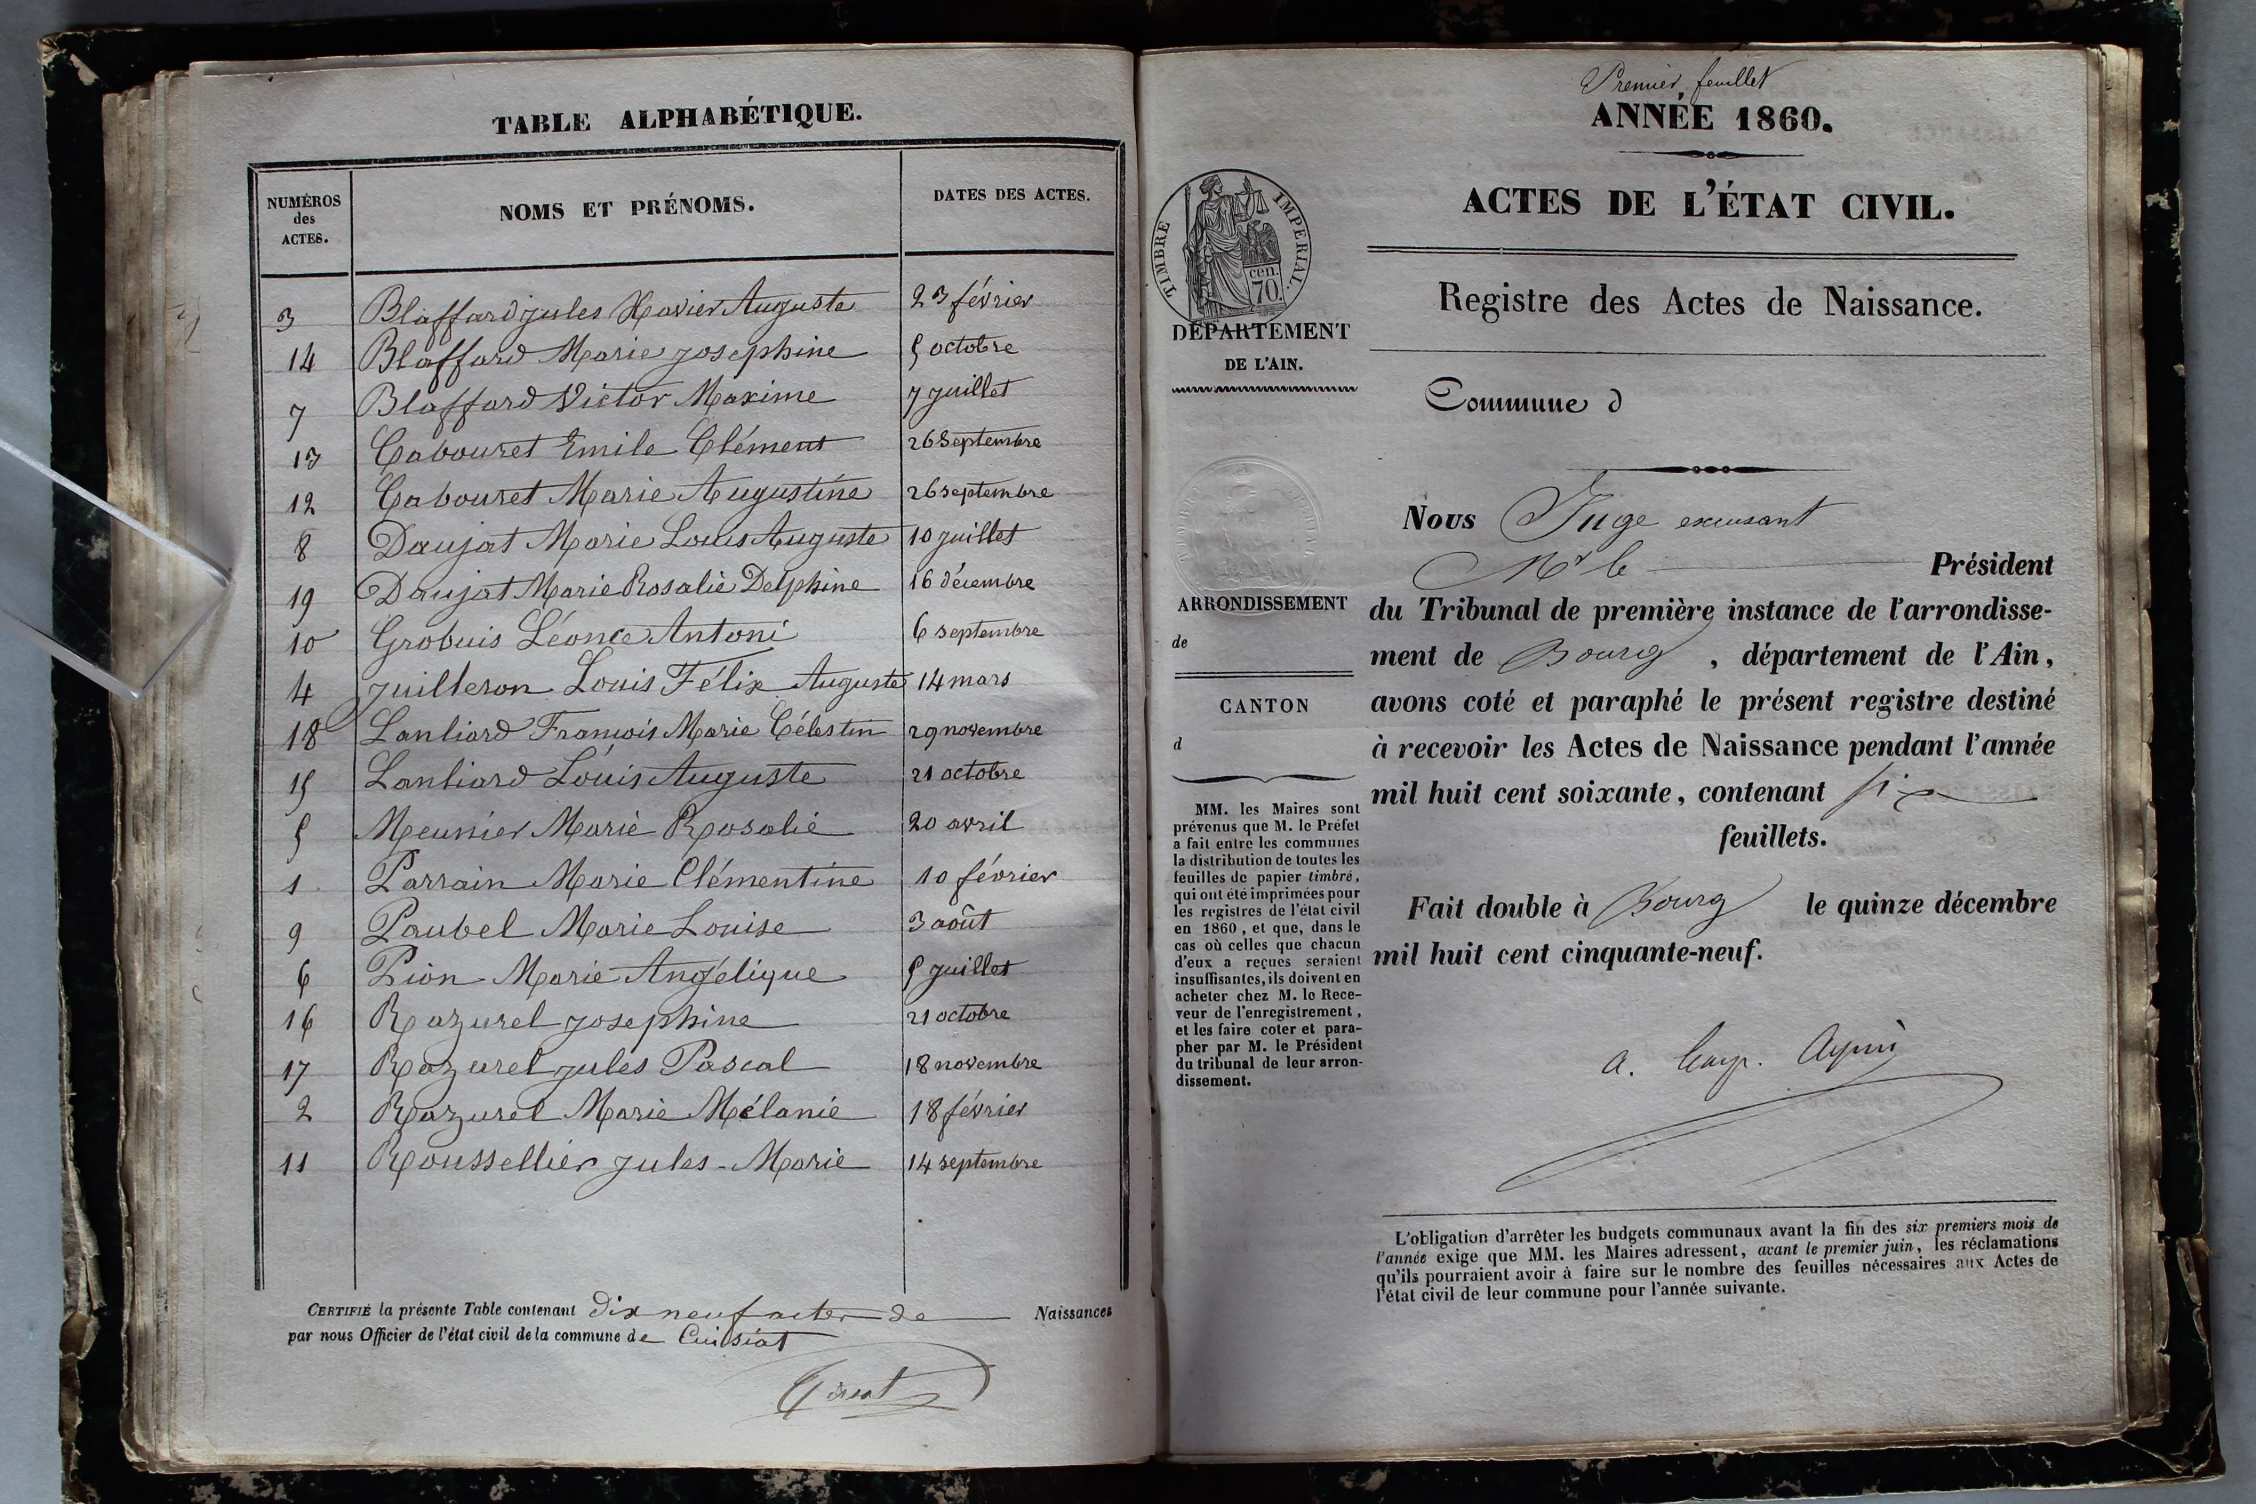 TABLE ALPHABÉTIQUE.
NUMÉROS des ACTES. NOMS ET PRÉNOMS. DATES DES ACTES.
3 Blaffard jules Xavier Auguste 23 février
14 Blaffard Marie josephine 5 octobre
7 Blaffard Victor Maxime 7 juillet
13 Cabouret Emile Clément 26 Septembre
12 Cabouret Marie Augustine 26 septembre
8 Daujat Marie Louis Auguste 10 juillet
19 Daujat Marie Rosalie Delphine 16 décembre
10 Grobuis Léonce Antoni 6 septembre
4 juilleron Louis Félix Auguste 14 mars
18 Lanliard François Marie Célestin 29 novembre
15 Lanliard Louis Auguste 21 octobre
5 Meunier Marie Rosalie 20 avril
1 Parrain Marie Clémentine 10 février
9 Paubel Marie Louise 3 août
6 Pion Marie Angélique 5 juillet
16 Razurel josephine 21 octobre
17 Razurel jules Pascal 18 novembre
2 Razurel Marie Mélanie 18 février
11 Roussellier jules-Marie 14 septembre
CERTIFIÉ la présente Table contenant dix neuf actes de Naissances
par nous Officier de l'état civil de la commune de Cuisiat
Premier feuillet
ANNÉE 1860.
ACTES DE L'ÉTAT CIVIL.
Registre des Actes de Naissance.
TIMBRE IMPÉRIAL.
70 cen.
DÉPARTEMENT
DE L'AIN.
Commune d
ARRONDISSEMENT
de
CANTON
d
MM. les Maires sont
prévenus que M. le Préfet
a fait entre les communes
la distribution de toutes les
feuilles de papier timbré,
qui ont été imprimées pour
les registres de l'état civil
en 1860, et que, dans le
cas où celles que chacun
d'eux a reçues seraient
insuffisantes, ils doivent en
acheter chez M. le Rece-
veur de l'enregistrement,
et les faire coter et para-
pher par M. le Président
du tribunal de leur arron-
dissement.
Nous Juge excusant
Mr le Président
du Tribunal de première instance de l'arrondisse-
ment de Bourg, département de l'Ain,
avons coté et paraphé le présent registre destiné
à recevoir les Actes de Naissance pendant l'année
mil huit cent soixante, contenant six
feuillets.
Fait double à Bourg le quinze décembre
mil huit cent cinquante-neuf.
L'obligation d'arrêter les budgets communaux avant la fin des six premiers mois de
l'année exige que MM. les Maires adressent, avant le premier juin, les réclamations
qu'ils pourraient avoir à faire sur le nombre des feuilles nécessaires aux Actes de
l'état civil de leur commune pour l'année suivante.